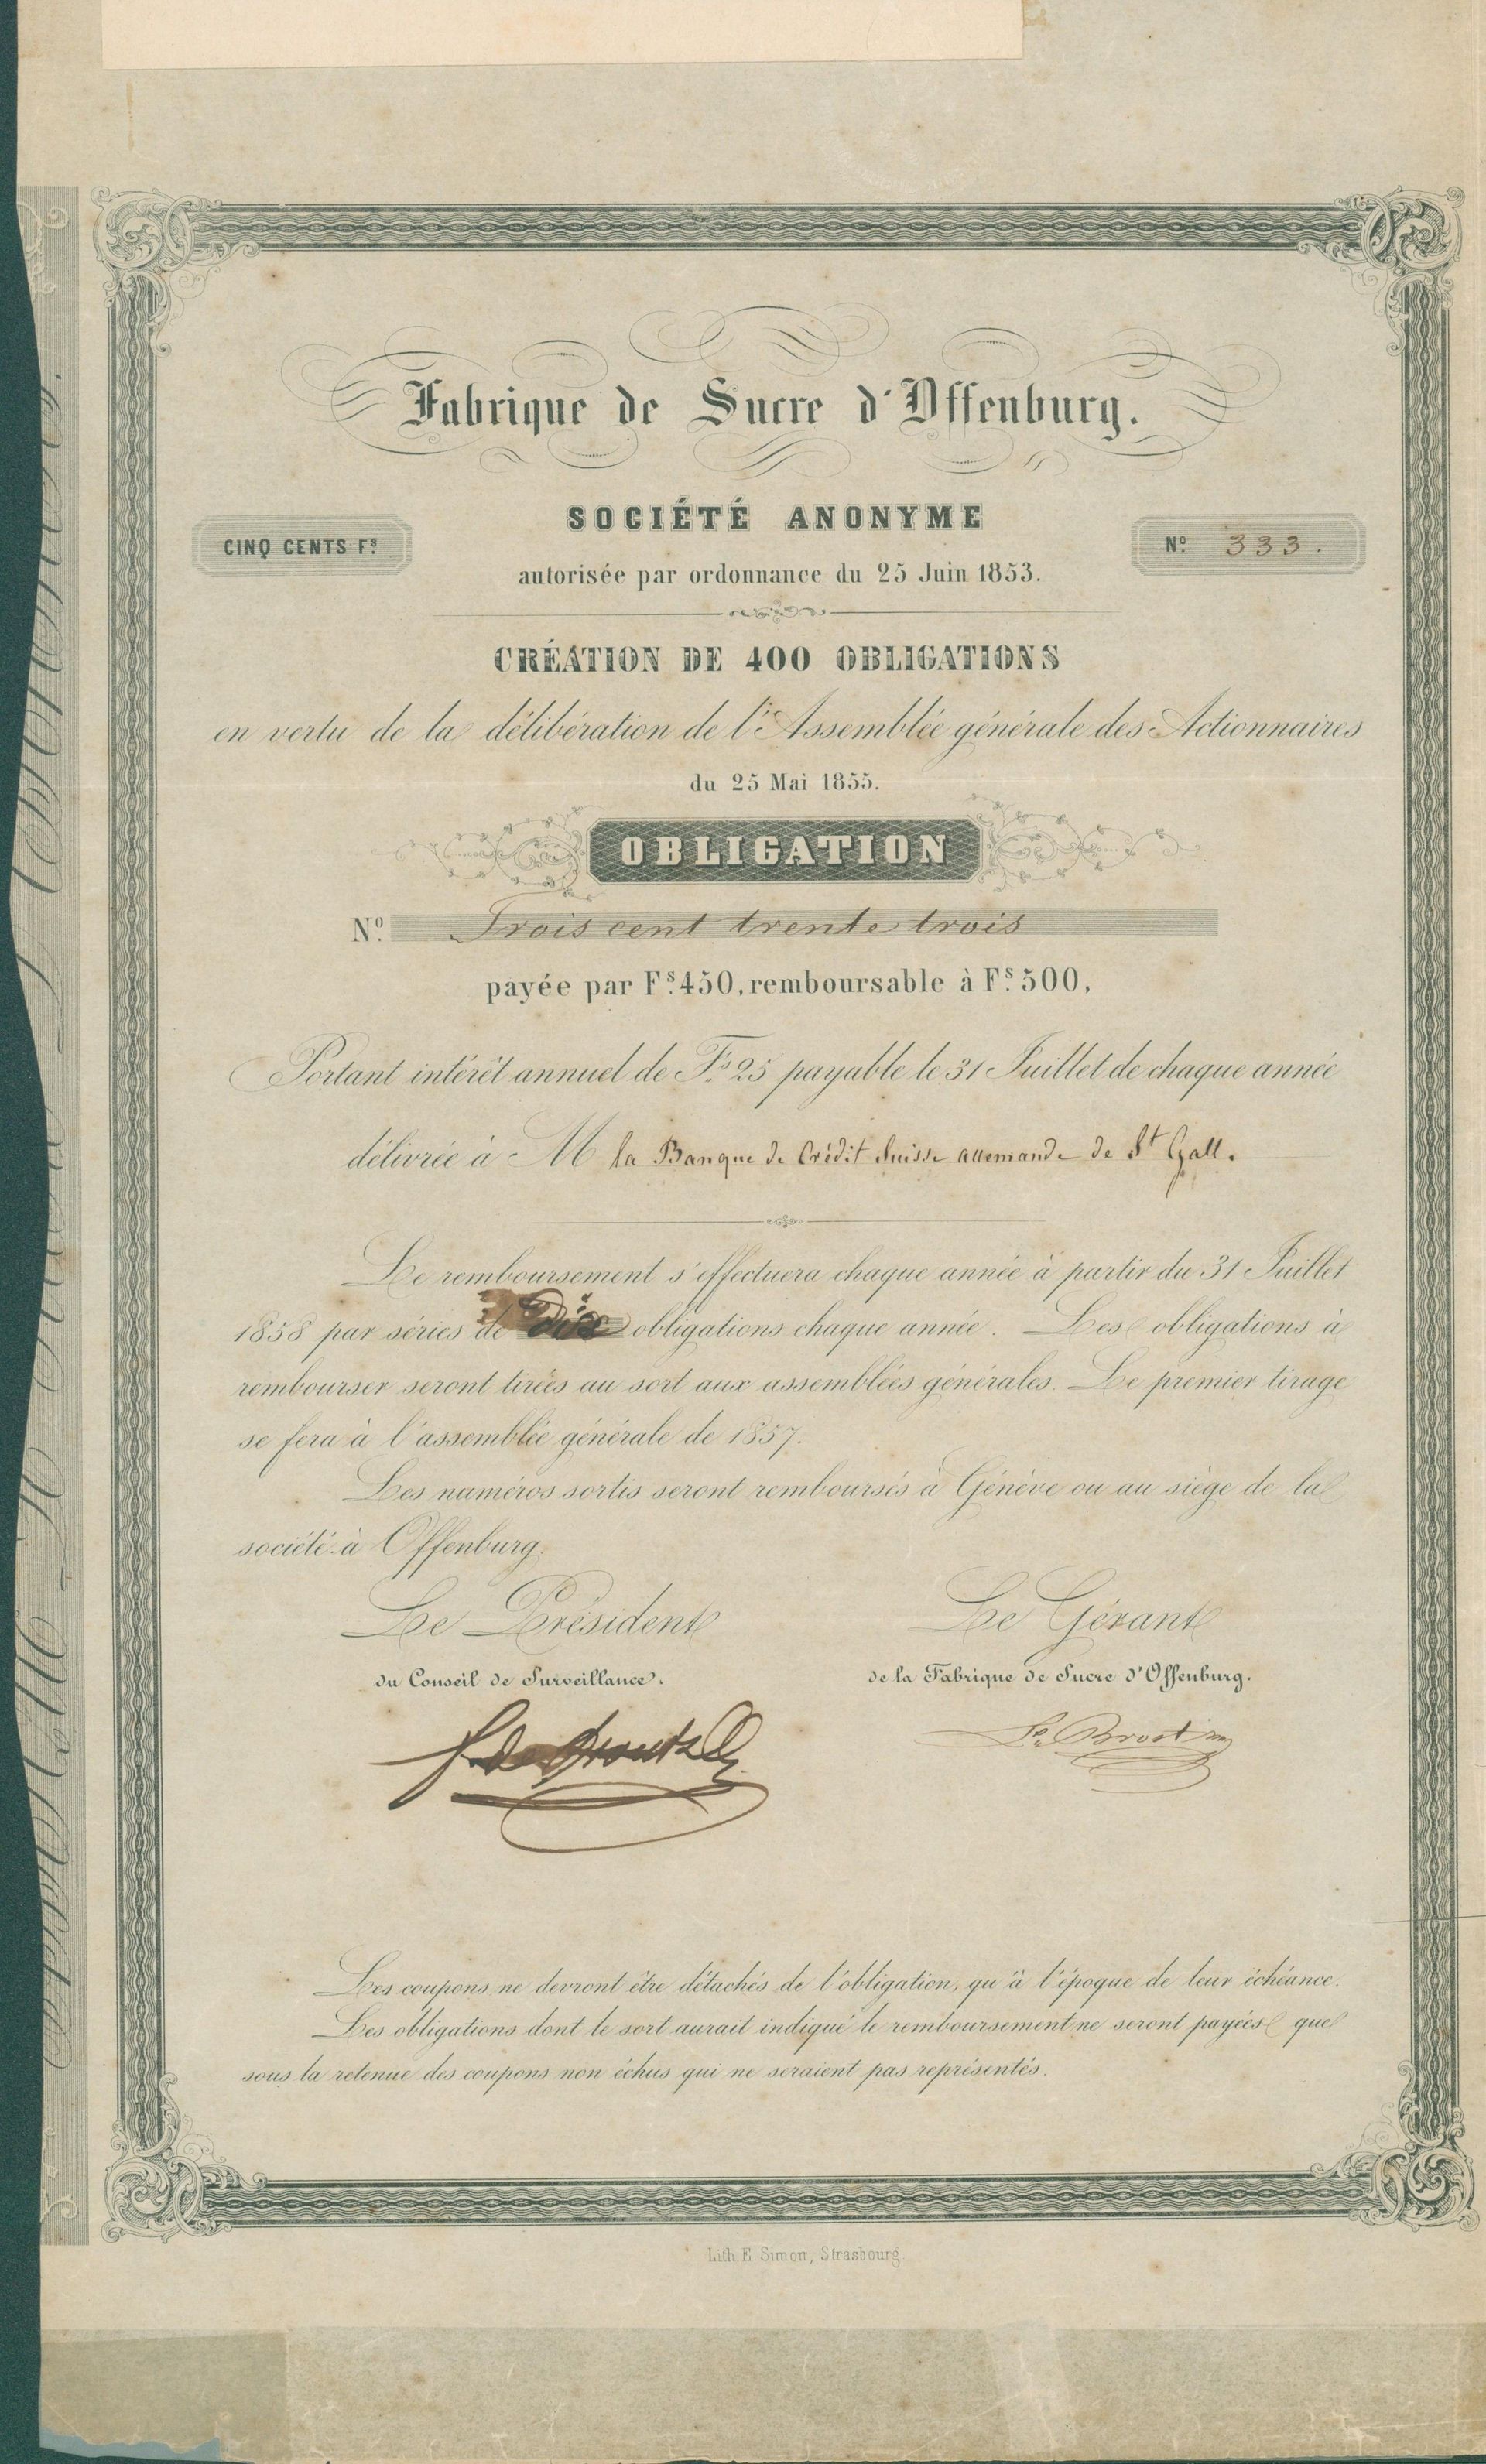 Fabrique de Sucre d'Offenburg.
SOCIÉTÉ ANONYME
CINQ CENTS Fs.
No. 333.
autorisée par ordonnance du 25 Juin 1853.
CRÉATION DE 400 OBLIGATIONS
en vertu de la délibération de l'Assemblée générale des Actionnaires
du 25 Mai 1855.
OBLIGATION
No. Trois cent trente trois
payée par Fs. 450, remboursable à Fs. 500,
Portant intérêt annuel de Fs. 25 payable le 31 Juillet de chaque année
délivrée à M la Banque de Crédit Suisse allemande de St Gall.
Le remboursement s'effectuera chaque année à partir du 31 Juillet
1858 par séries de Dix obligations chaque année. Les obligations à
rembourser seront tirées au sort aux assemblées générales. Le premier tirage
se fera à l'assemblée générale de 1857.
Les numéros sortis seront remboursés à Génève ou au siège de la
société à Offenburg.
Le Président
du Conseil de Surveillance.
Le Gérant
de la Fabrique de Sucre d'Offenburg.
Les coupons ne devront être détachés de l'obligation, qu'à l'époque de leur échéance.
Les obligations dont le sort aurait indiqué le remboursement ne seront payées que
sous la retenue des coupons non échus qui ne seraient pas représentés.
Lith. E. Simon, Strasbourg